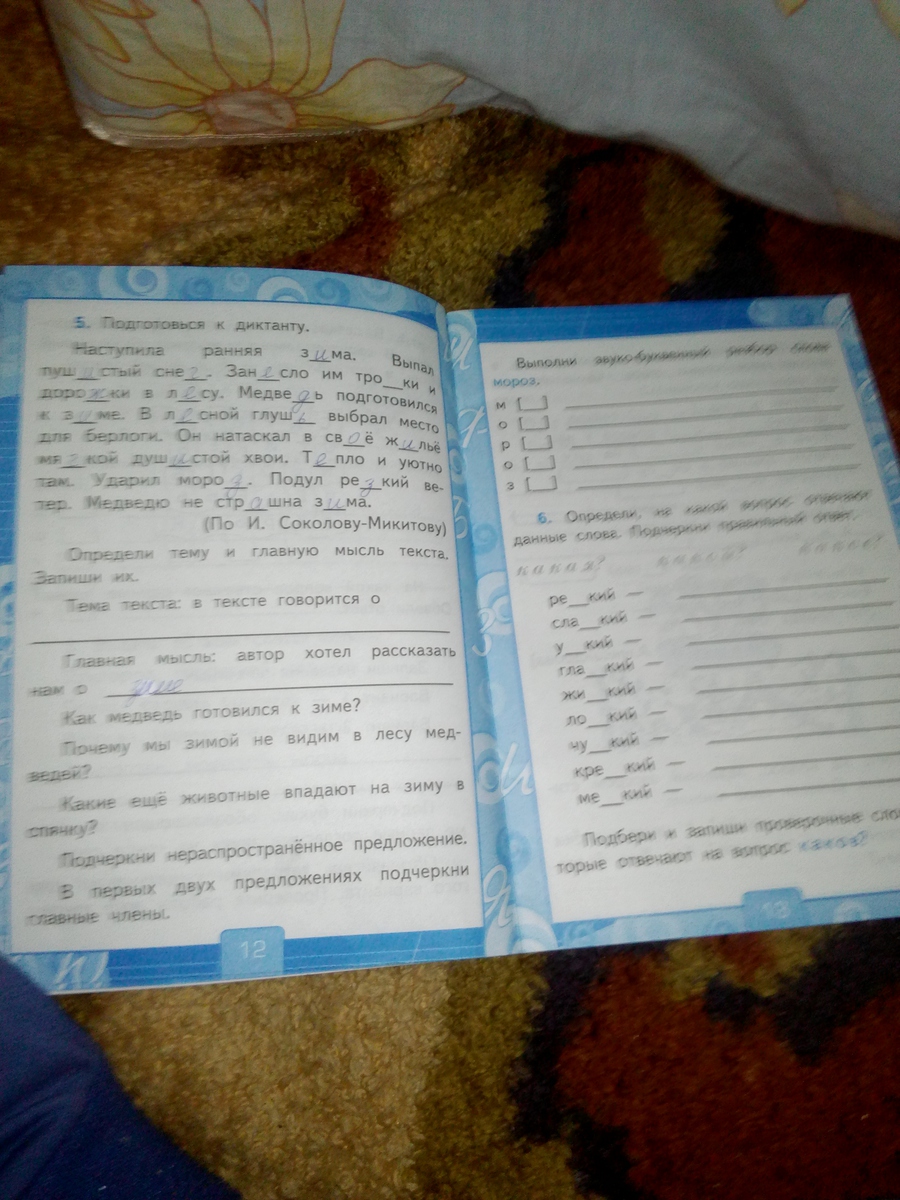 5. Подготовься к диктанту.
Наступила ранняя зима. Выпал
пушистый снег. Занесло им тро__ки и
дорожки в лесу. Медведь подготовился
к зиме. В лесной глушь выбрал место
для берлоги. Он натаскал в своё жильё
мягкой душистой хвои. Тепло и уютно
там. Ударил мороз. Подул резкий ве-
тер. Медведю не страшна зима.
(По И. Соколову-Микитову)
Определи тему и главную мысль текста.
Запиши их.
Тема текста: в тексте говорится о
Главная мысль: автор хотел рассказать
нам о зиме
Как медведь готовился к зиме?
Почему мы зимой не видим в лесу мед-
ведей?
Какие ещё животные впадают на зиму в
спячку?
Подчеркни нераспространённое предложение.
В первых двух предложениях подчеркни
главные члены.
12
Выполни звуко-буквенный разбор слова
мороз.
м [ ]
о [ ]
р [ ]
о [ ]
з [ ]
6. Определи, на какой вопрос отвечают
данные слова. Подчеркни правильный ответ.
какая? какой? какое?
ре__кий —
сла__кий —
у__кий —
гла__кий —
жи__кий —
ло__кий —
чу__кий —
кре__кий —
ме__кий —
Подбери и запиши проверочные сло
торые отвечают на вопрос каков?
13